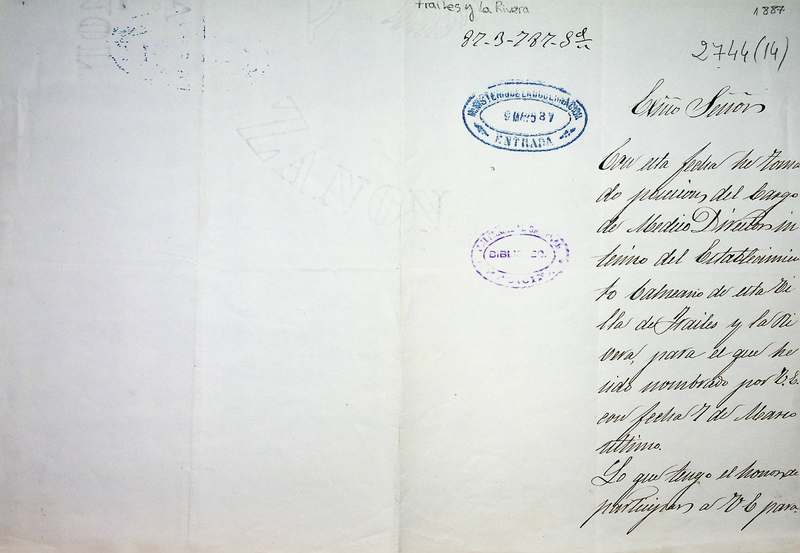 Frailes y La Rivera
1887
82-3-787-S
2744(14)
MINISTERIO DE LA GOBERNACION
9 MAY 87
ENTRADA
Exmo Señor
Con esta fecha he toma
do posicion del Cargo
de Medico Director in
terino del Establecimien
to Balneario de esta Vi
lla de Frailes y la Ri
vera, para el que he
sido nombrado por V.E.
con fecha 7 de Marzo
ultimo.
Lo que tengo el honor de
participar a V E para
ZANON